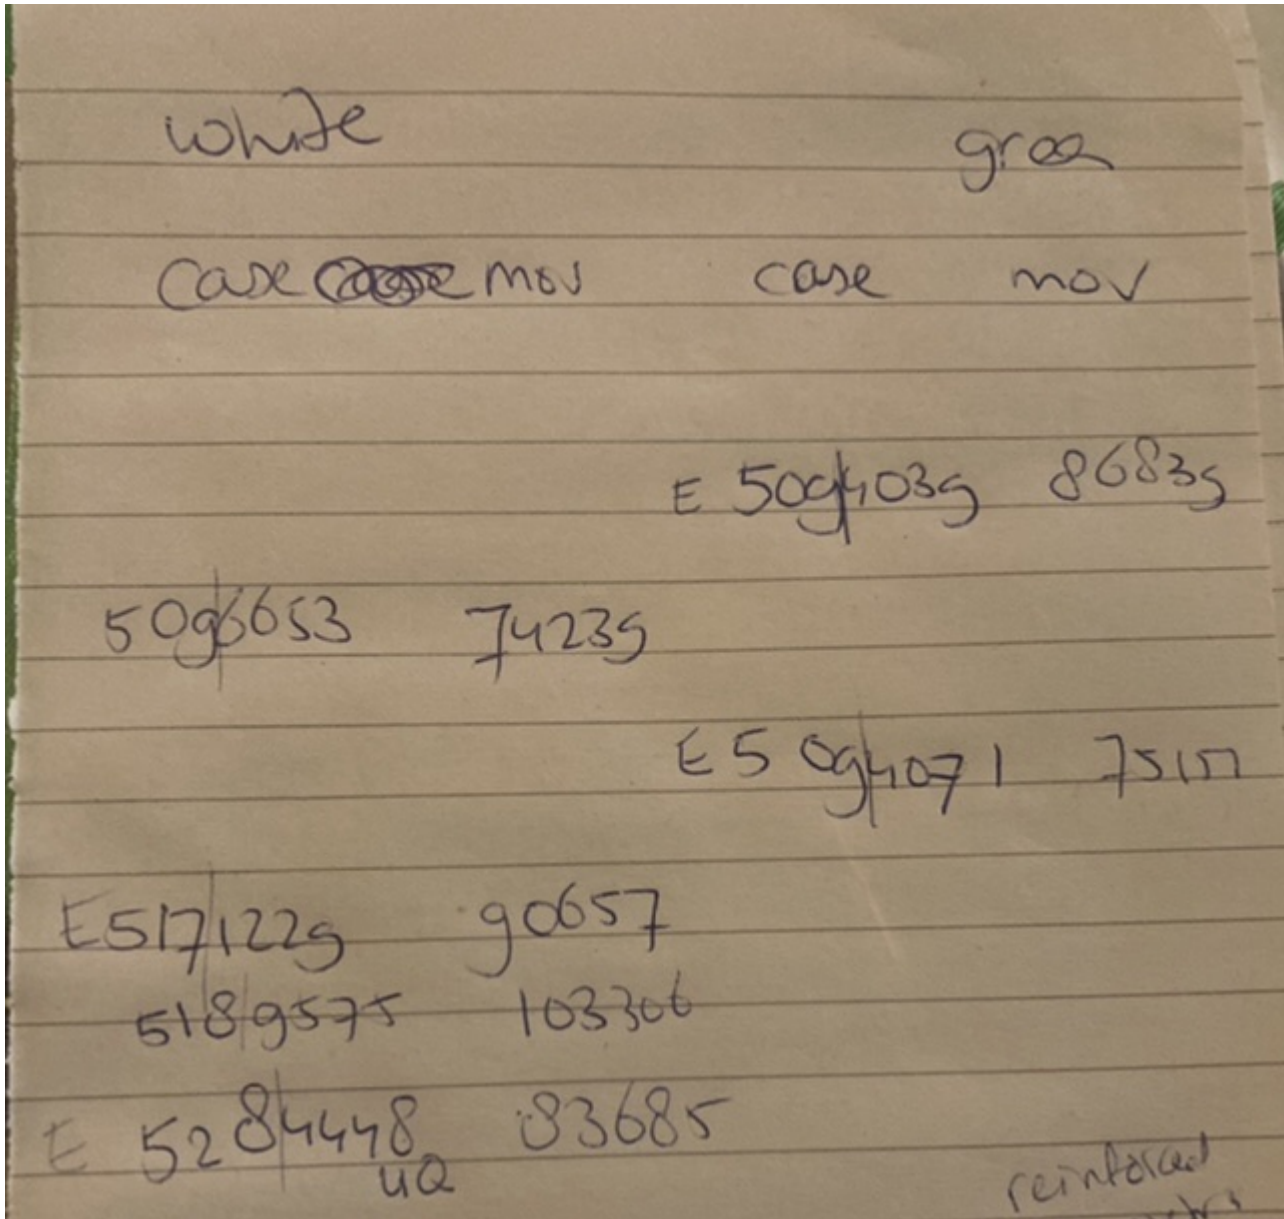 white green
case mov case mov
E 509|4039 86839
509|6653 74239
E 509|4071 75151
E517|1229 90657
518|9575 103306
E 528|4448 83685
UQ
reinforced